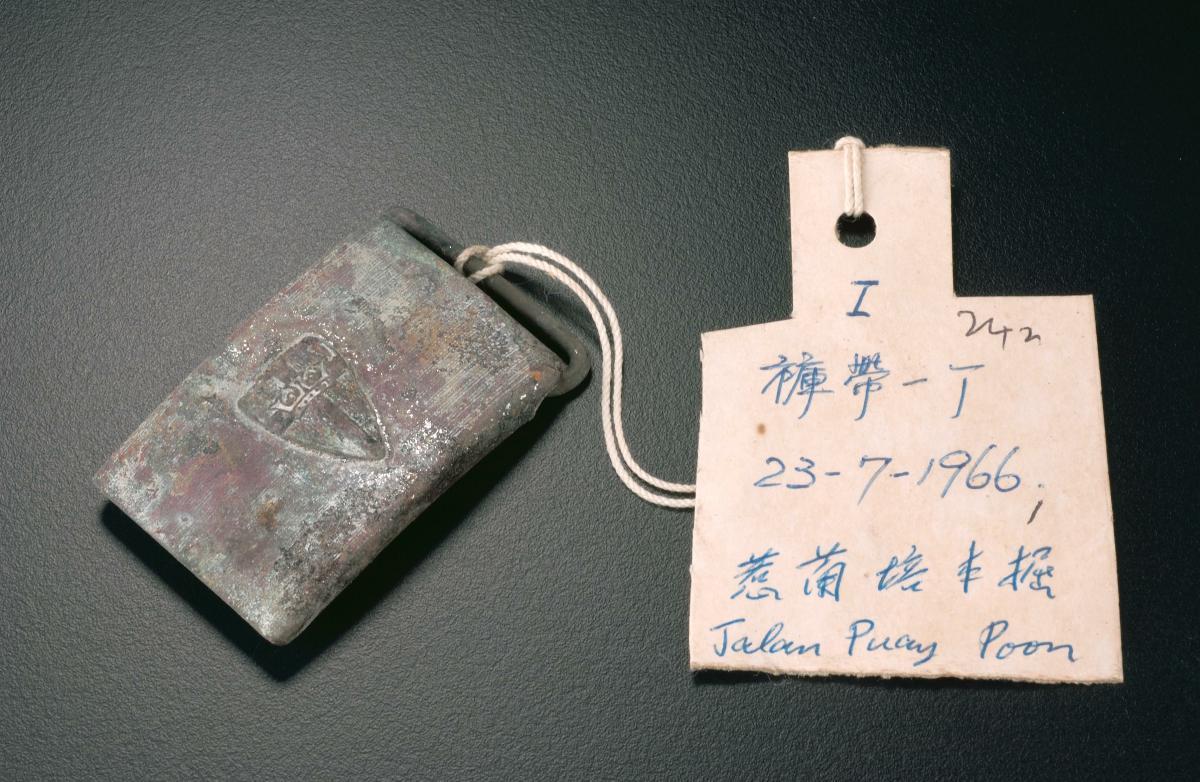 I
242
褲帶一丁
23-7-1966;
惹蘭培本掘
Jalan Puay Poon